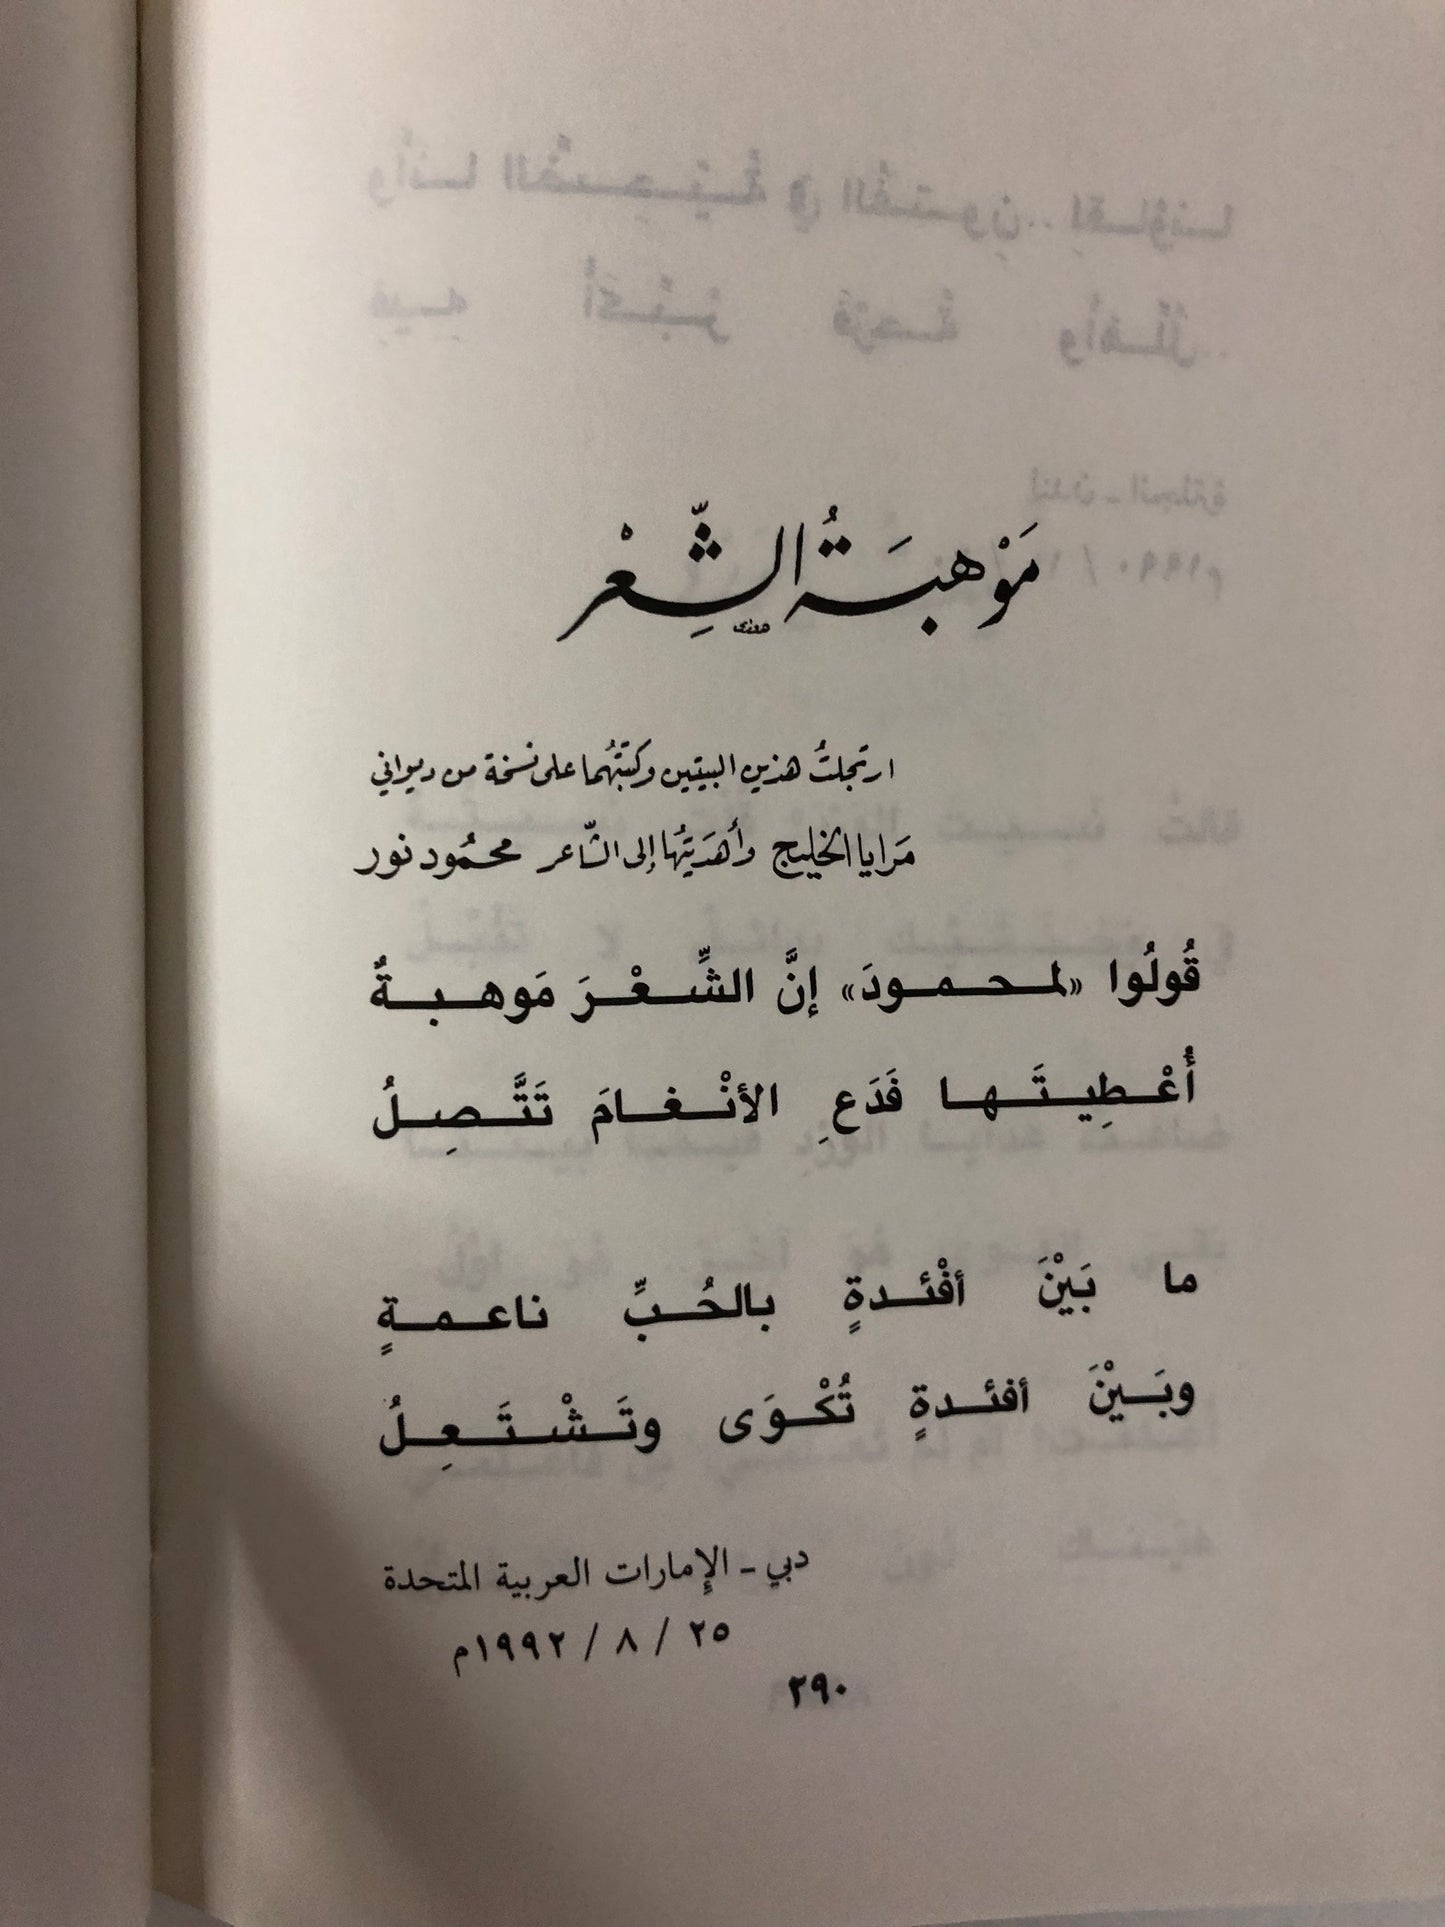 مَوْهبَةُ الشِّعْر
ارتجلتُ هذين البيتين وكتبتُهما على نسخة من ديواني
مَرايا الخليج وأهدَيتُها إلى الشّاعر محمُود نور
قُولُوا «لمحمودَ» إنَّ الشِّعْرَ مَوهبةٌ
أُعْطِيتَها فَدَعِ الأنْغامَ تَتَّصِلُ
ما بَيْنَ أفْئدةٍ بالحُبِّ ناعمةٍ
وبَيْنَ أفئدةٍ تُكْوَى وتَشْتَعِلُ
دبي ـ الإمارات العربية المتحدة
٢٥ / ٨ / ١٩٩٢م
٢٩٠